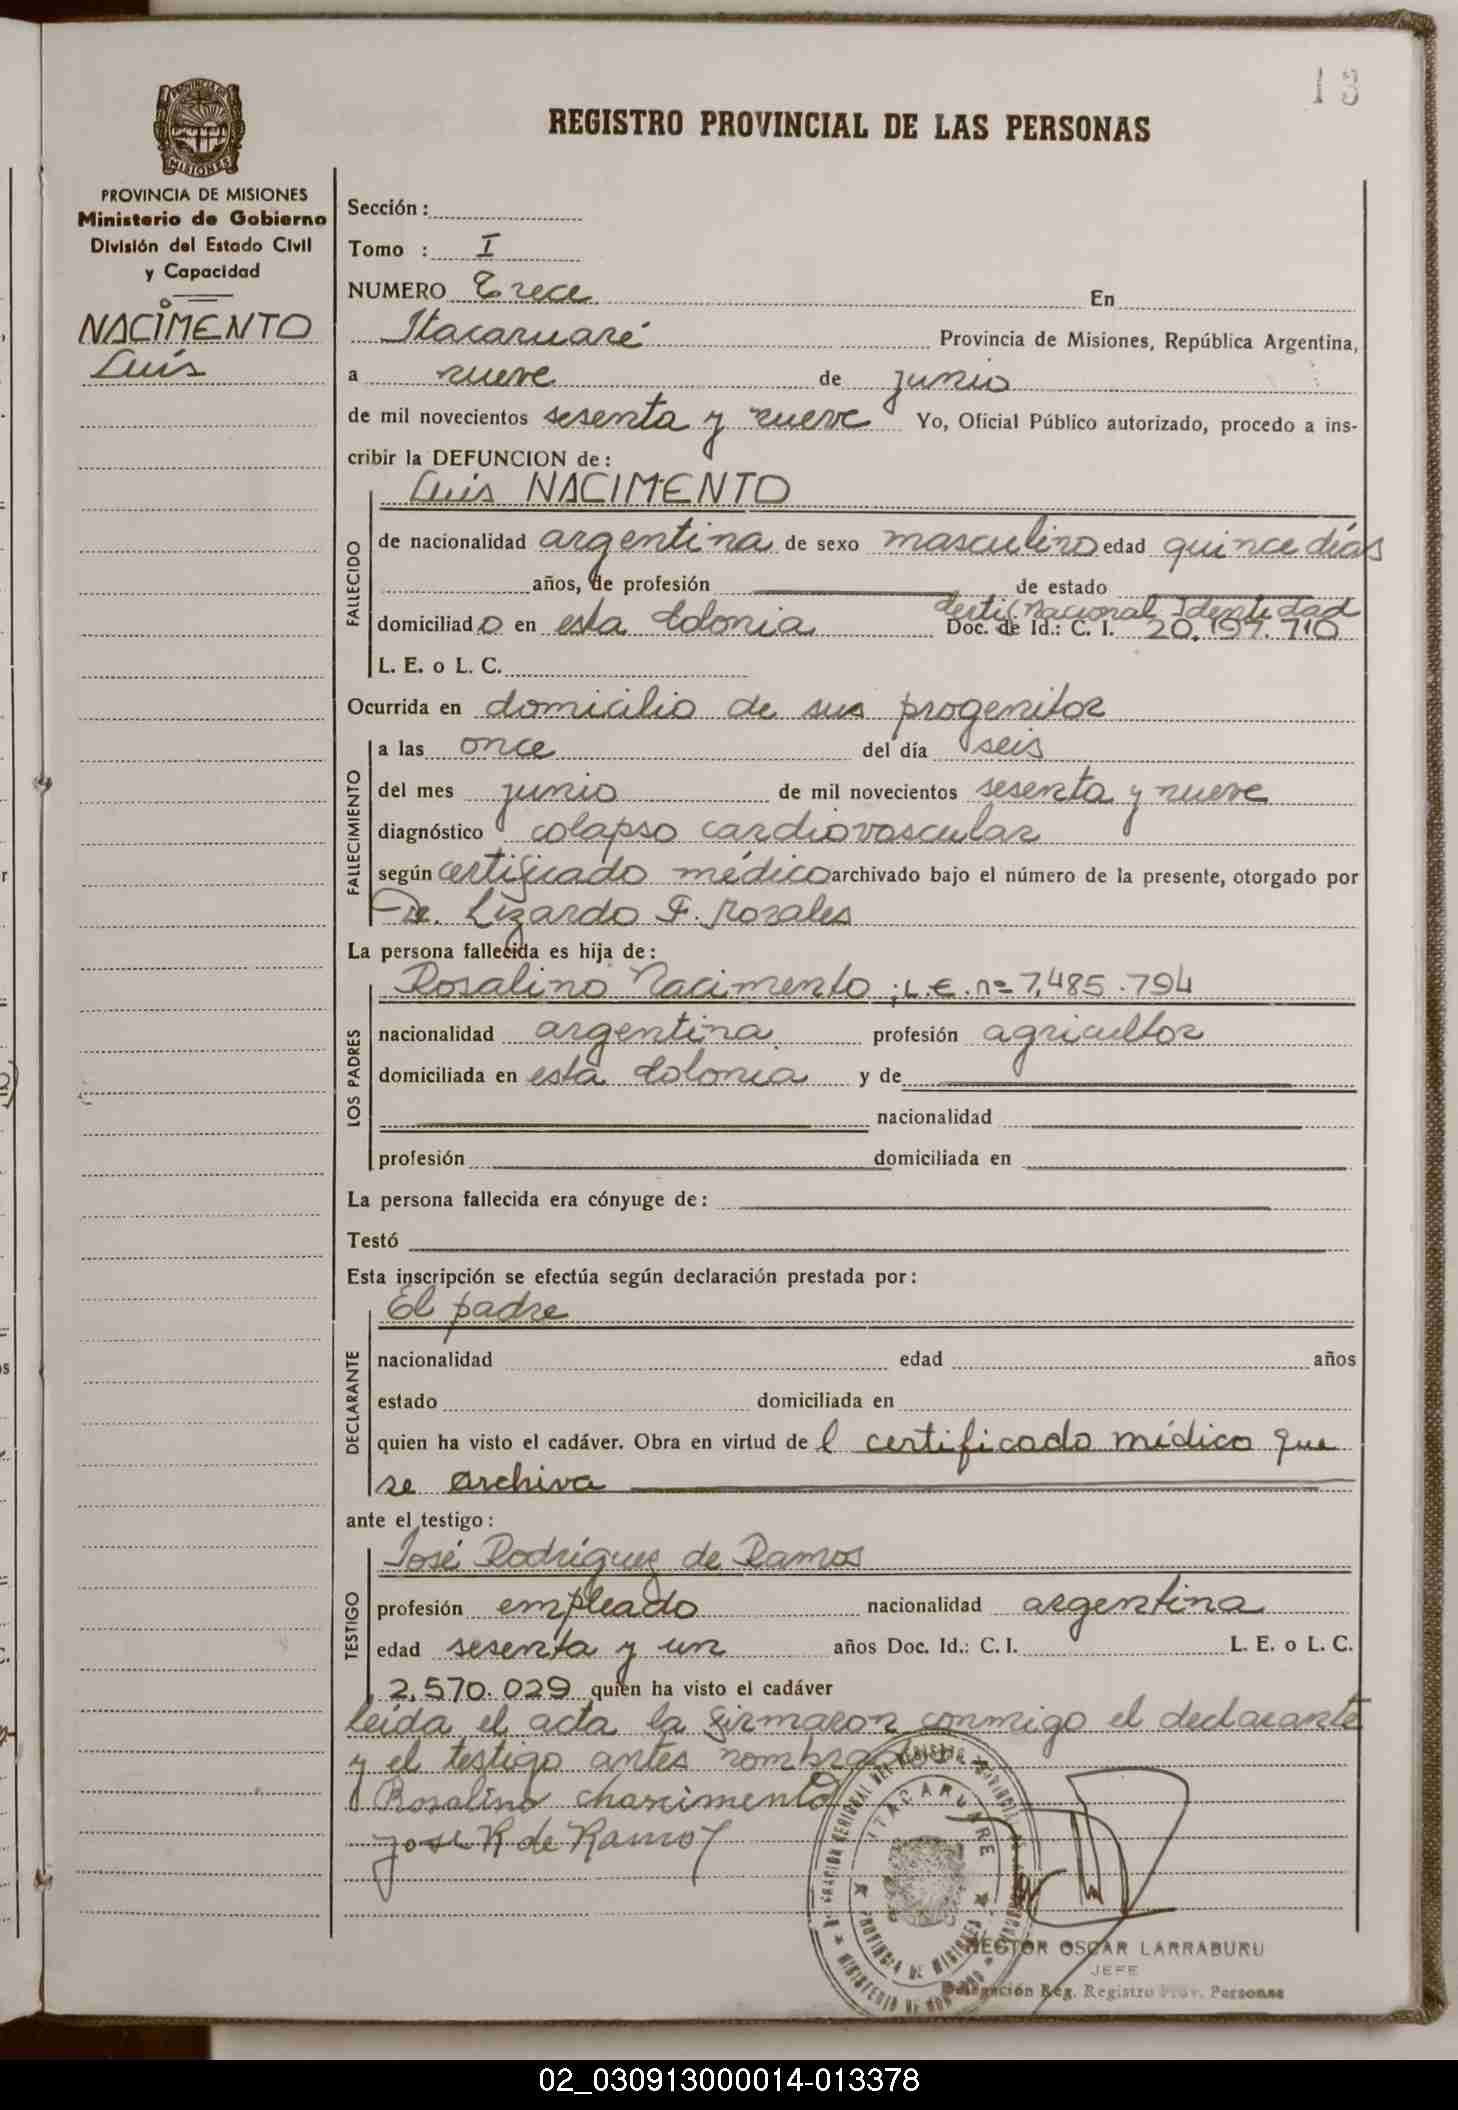 13
REGISTRO PROVINCIAL DE LAS PERSONAS
PROVINCIA DE MISIONES
Ministerio de Gobierno
División del Estado Civil
y Capacidad
NACIMENTO
Luis
Sección:
Tomo : I
NUMERO Trece En
Itacaruaré Provincia de Misiones, República Argentina,
a nueve de junio
de mil novecientos sesenta y nueve Yo, Oficial Público autorizado, procedo a ins-
cribir la DEFUNCION de:
Luis NACIMENTO
FALLECIDO
de nacionalidad argentina de sexo masculino edad quince días
años, de profesión de estado
certif. nacional Identidad
domiciliado en esta Colonia Doc. de Id.: C. I. 20.197.710
L. E. o L. C.
Ocurrida en domicilio de sus progenitor
FALLECIMIENTO
a las once del día seis
del mes junio de mil novecientos sesenta y nueve
diagnóstico colapso cardiovascular
según certificado médico archivado bajo el número de la presente, otorgado por
Dr. Lizardo F. Rosales
La persona fallecida es hija de:
LOS PADRES
Rosalino Nacimento ; L.E. nº 7,485.794
nacionalidad argentina profesión agricultor
domiciliada en esta Colonia y de
nacionalidad
profesión domiciliada en
La persona fallecida era cónyuge de:
Testó
Esta inscripción se efectúa según declaración prestada por:
DECLARANTE
El padre
nacionalidad edad años
estado domiciliada en
quien ha visto el cadáver. Obra en virtud de l certificado médico que
se archiva
ante el testigo:
TESTIGO
José Rodríguez de Ramos
profesión empleado nacionalidad argentina
edad sesenta y un años Doc. Id.: C. I. L. E. o L. C.
2,570.029 quien ha visto el cadáver
leída el acta la firmaron conmigo el declarante
y el testigo antes nombrados
Rosalino Chascimento
Jose R de Ramos
ITACARUARE
PROVINCIA DE MISIONES
HECTOR OSCAR LARRABURU
JEFE
Delegación Reg. Registro Prov. Personas
02_030913000014-013378